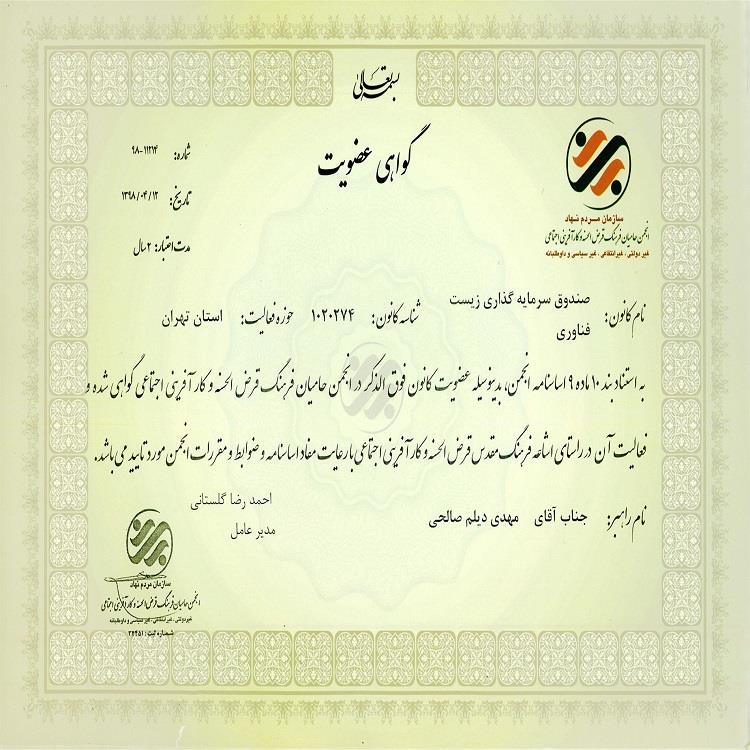 بسمه تعالی
گواهی عضویت
شماره: ۹۸-۱۱۲۱۴
تاریخ: ۱۳۹۸/۰۴/۱۲
مدت اعتبار: ۲ سال
سازمان مردم نهاد
انجمن حامیان فرهنگ قرض الحسنه و کارآفرینی اجتماعی
غیر دولتی، غیر انتفاعی، غیر سیاسی و داوطلبانه
نام کانون: صندوق سرمایه گذاری زیست فناوری شناسه کانون: ۱۰۲۰۲۷۴ حوزه فعالیت: استان تهران
به استناد بند ۱۰ ماده ۹ اساسنامه انجمن، بدینوسیله عضویت کانون فوق الذکر در انجمن حامیان فرهنگ قرض الحسنه و کارآفرینی اجتماعی گواهی شده و
فعالیت آن در راستای اشاعه فرهنگ مقدس قرض الحسنه و کارآفرینی اجتماعی با رعایت مفاد اساسنامه و ضوابط و مقررات انجمن مورد تایید می باشد.
نام راهبر: جناب آقای مهدی دیلم صالحی
احمد رضا گلستانی
مدیر عامل
سازمان مردم نهاد
انجمن حامیان فرهنگ قرض الحسنه و کارآفرینی اجتماعی
غیر دولتی، غیر انتفاعی، غیر سیاسی و داوطلبانه
شماره ثبت: ۲۴۴۵۱